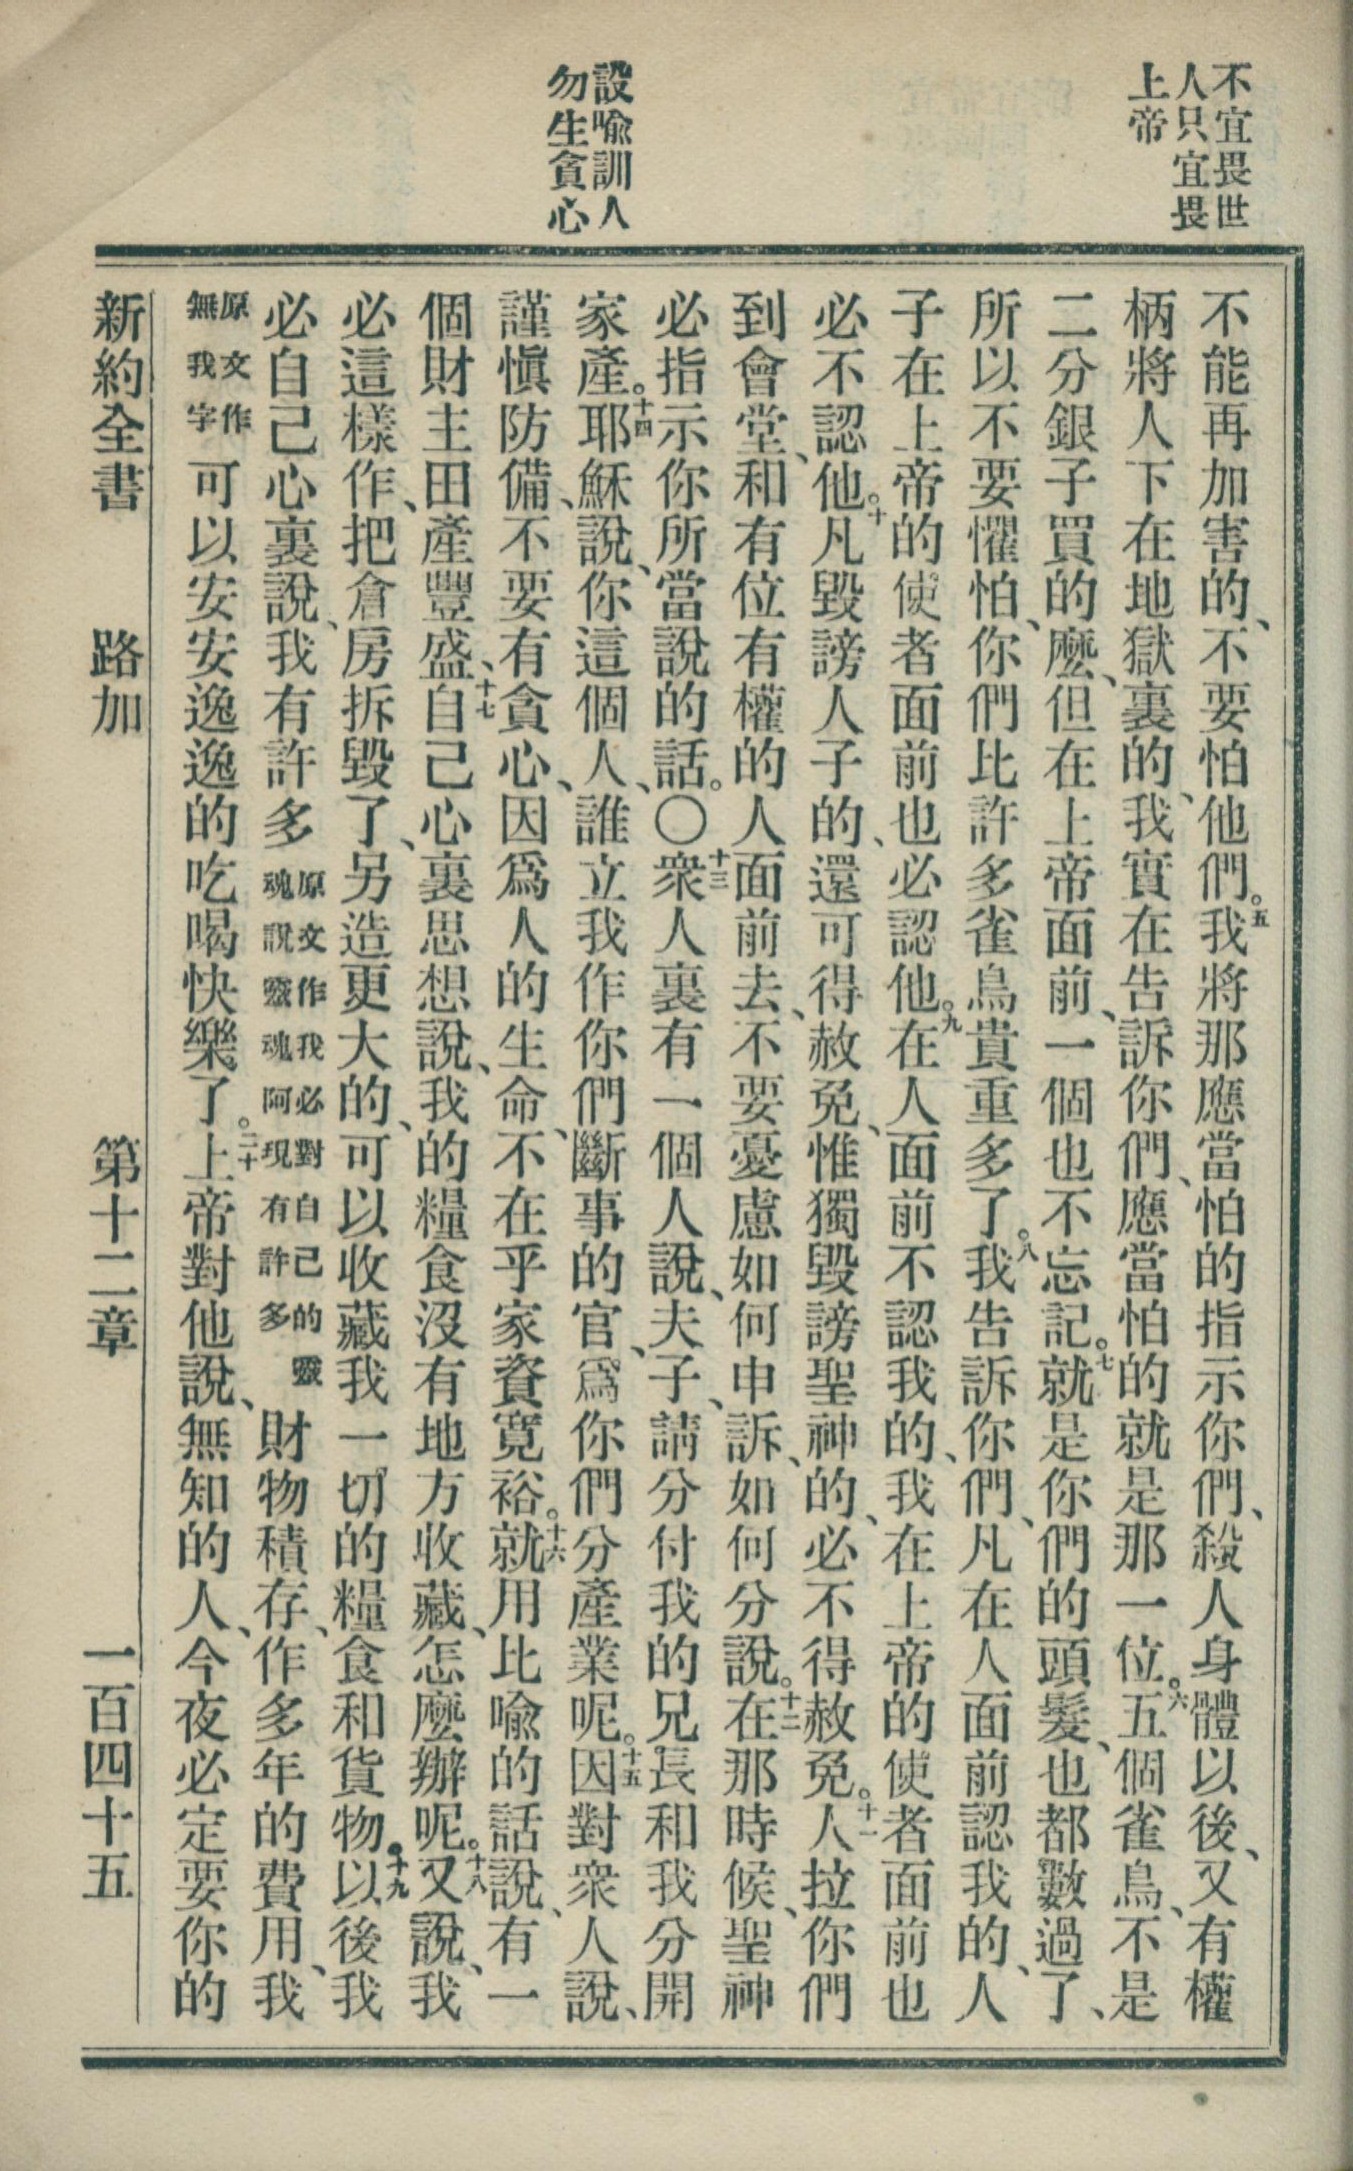 不宜畏世
人只宜畏
上帝
設喻訓人
勿生貪心
不能再加害的、不要怕他們。五我將那應當怕的指示你們、殺人身體以後、又有權
柄將人下在地獄裏的、我實在告訴你們、應當怕的就是那一位。六五個雀鳥、不是
二分銀子買的麼、但在上帝面前、一個也不忘記。七就是你們的頭髮、也都數過了、
所以不要懼怕、你們比許多雀鳥貴重多了。八我告訴你們、凡在人面前認我的、人
子在上帝的使者面前也必認他。九在人面前不認我的、我在上帝的使者面前也
必不認他。十凡毀謗人子的、還可得赦免、惟獨毀謗聖神的、必不得赦免。十一人拉你們
到會堂、和有位有權的人面前去、不要憂慮如何申訴、如何分說。十二在那時候、聖神
必指示你所當說的話。〇十三衆人裏有一個人說、夫子、請分付我的兄長和我分開
家產。十四耶穌說、你這個人、誰立我作你們斷事的官、爲你們分產業呢。十五因對衆人說、
謹慎防備、不要有貪心、因爲人的生命、不在乎家資寬裕。十六就用比喻的話說、有一
個財主田產豐盛、十七自己心裏思想說、我的糧食沒有地方收藏、怎麼辦呢。十八又說、我
必這樣作、把倉房拆毀了、另造更大的、可以收藏我一切的糧食和貨物。十九以後我
必自己心裏說、我有許多原文作我必對自己的靈魂說靈魂阿現有許多財物積存、作多年的費用、我
原文作無我字可以安安逸逸的吃喝快樂了。二十上帝對他說、無知的人、今夜必定要你的
新約全書　路加　第十二章　一百四十五